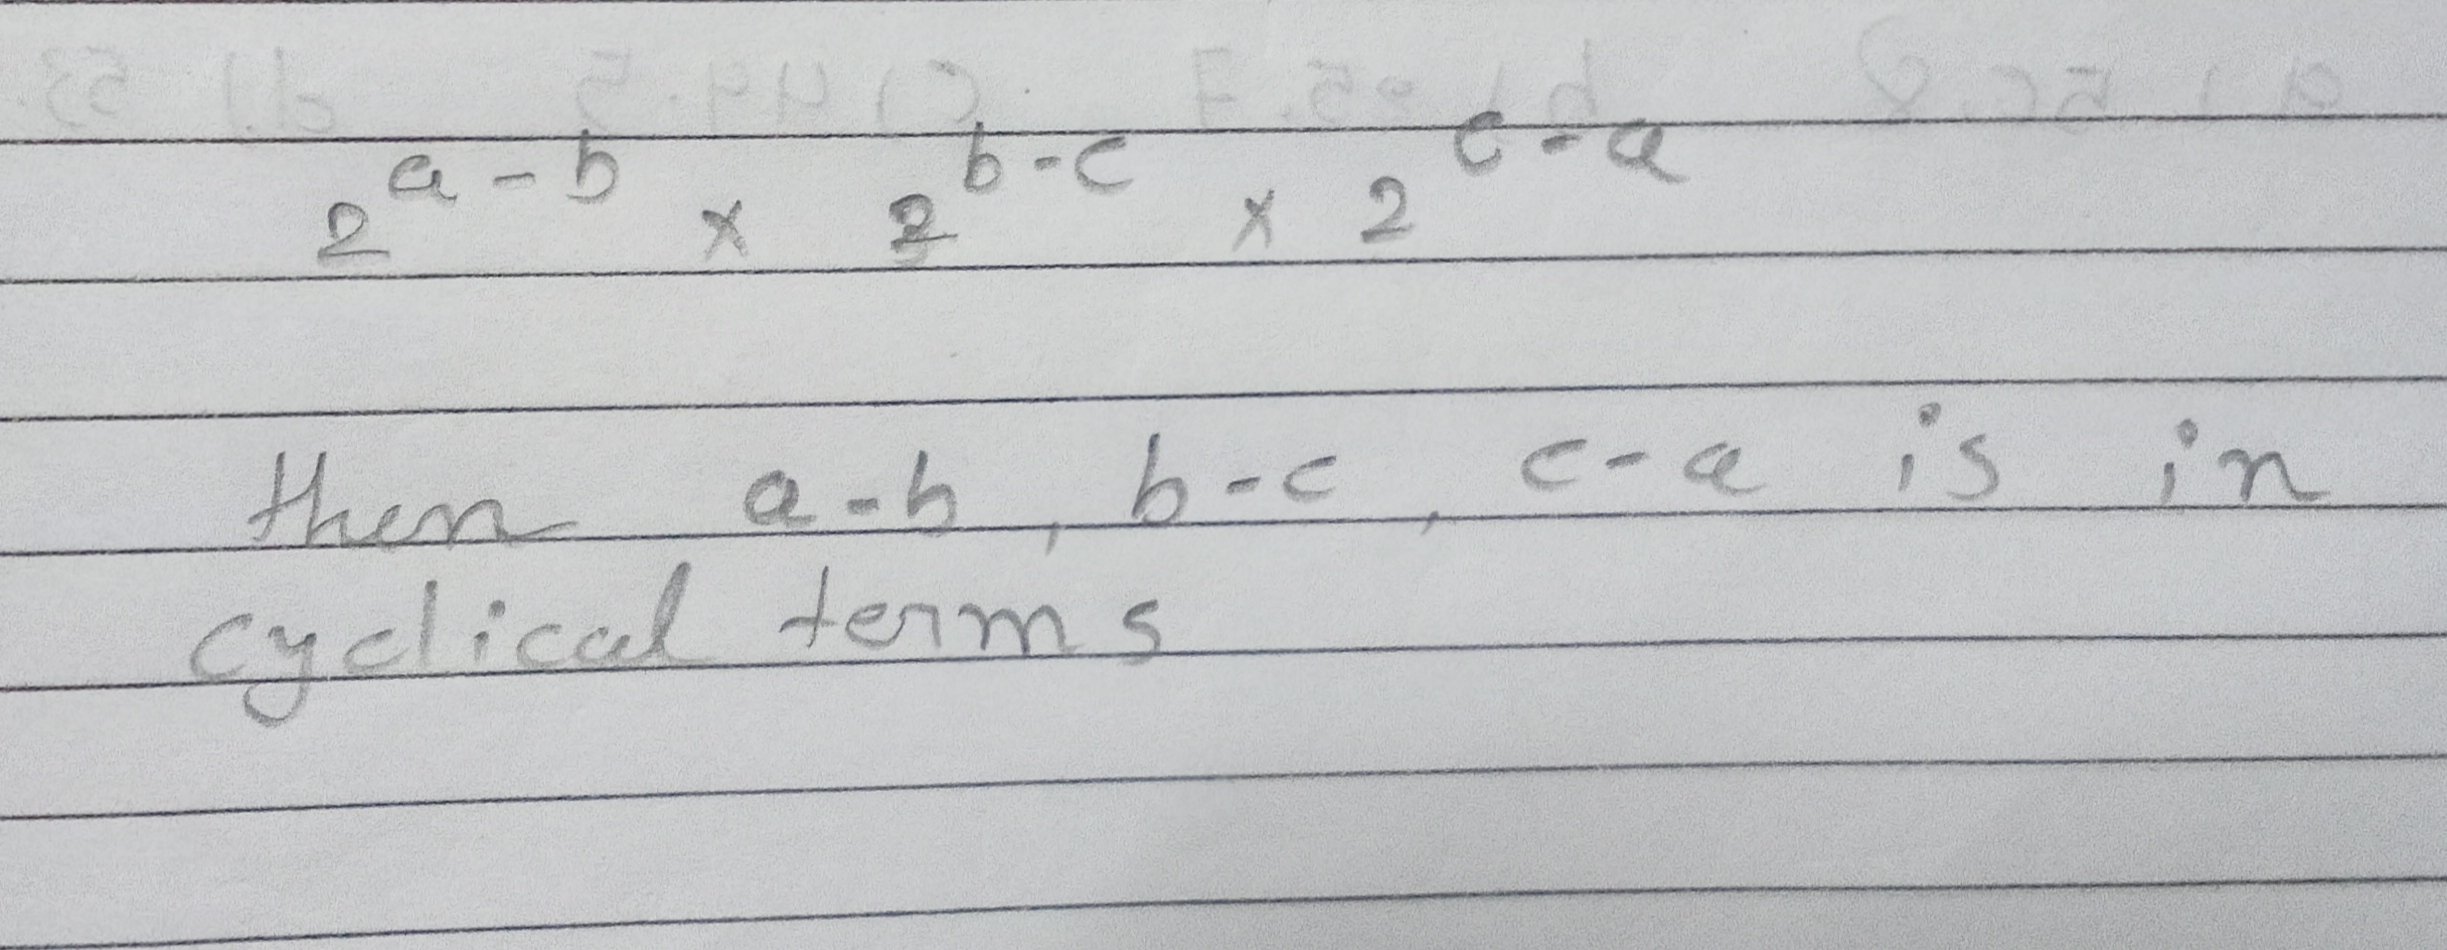 2^{a-b} × 2^{b-c} × 2^{c-a}
then a-b, b-c, c-a is in
cyclical terms